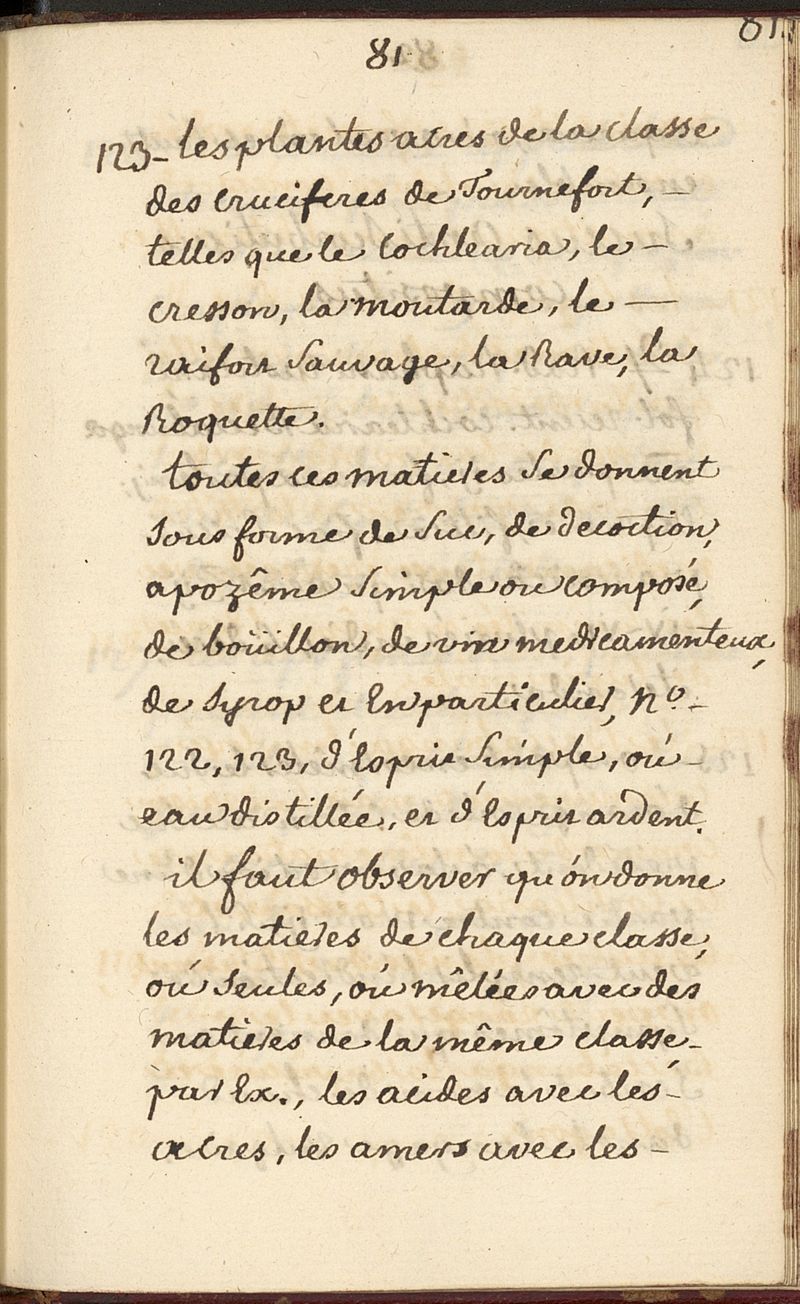 81
81
123- les plantes acres de la classe
des cruciferes de Tournefort, -
telles que le Cochlearia, le -
cresson, la moutarde, le —
raifort Sauvage, la Rave, la
Roquette.
toutes ces matieres se donnent
sous forme de suc, de decoction,
apozême simple ou composé,
de boüillon, de vin medicamenteux,
de syrop et En particulier, no. -
122, 123, d'Esprit simple, oú -
eau distillée, et d'Esprit ardent.
il faut observer qu'on donne
les matieres de chaque classe,
oú seules, oú mêlées avec des
matieres de la même classe -
par Ex., les acides avec les -
acres, les amers avec les -